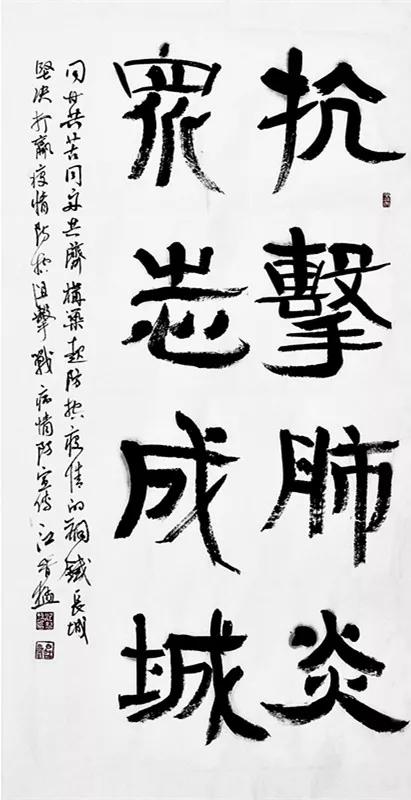 抗擊肺炎
眾志成城
同甘共苦同舟共濟構築起防控疫情的銅鐵長城
堅決打贏疫情防控阻擊戰 疫情防宣傳 江